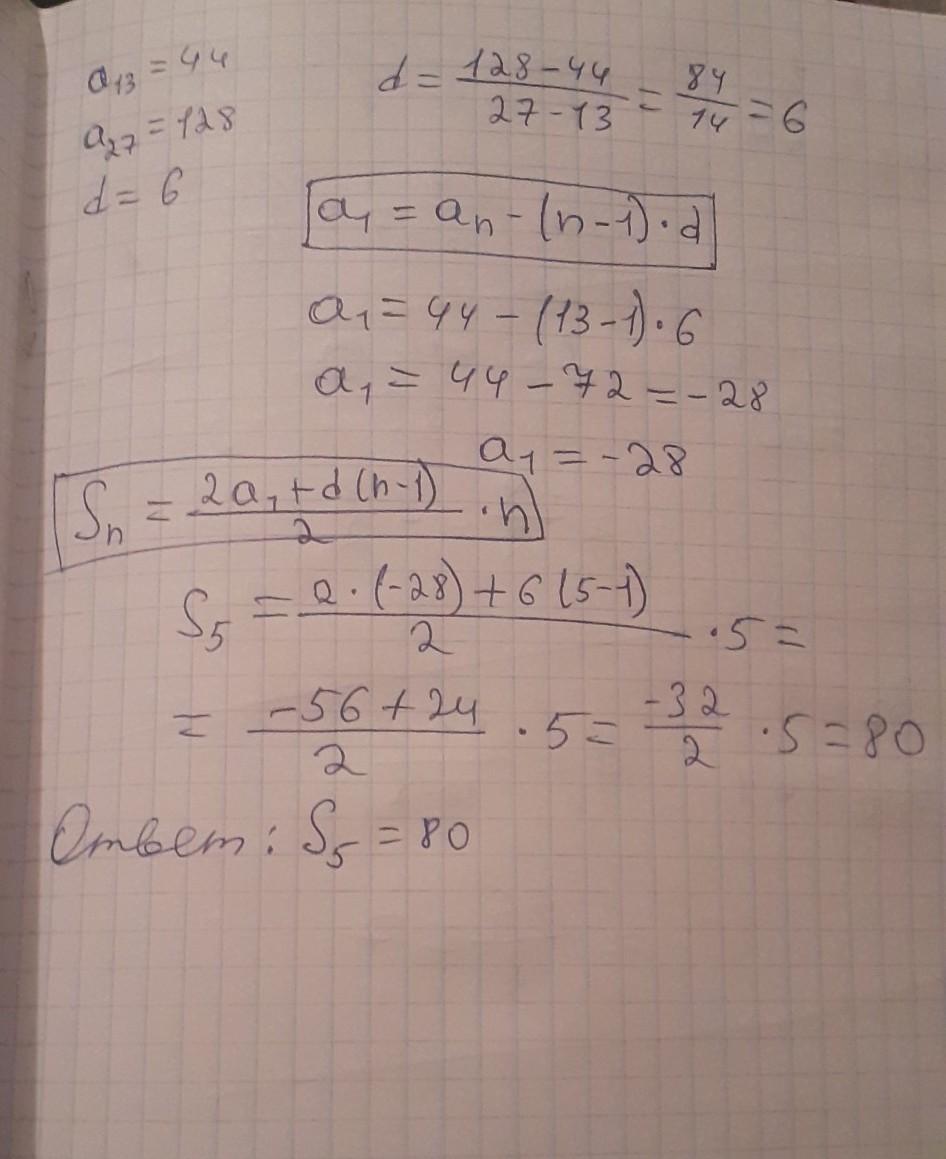 a₁₃ = 44
a₂₇ = 128
d = 6
d = (128 - 44)/(27 - 13) = 84/14 = 6
a₁ = aₙ - (n-1)·d
a₁ = 44 - (13-1)·6
a₁ = 44 - 72 = -28
a₁ = -28
Sₙ = (2a₁ + d(n-1))/2 · n
S₅ = (2·(-28) + 6(5-1))/2 · 5 =
= (-56 + 24)/2 · 5 = -32/2 · 5 = 80
Ответ: S₅ = 80